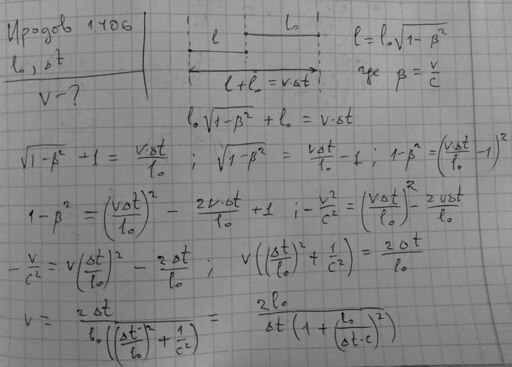 Иродов 1406
l₀, Δt
v - ?
l l₀
l + l₀ = v·Δt
l = l₀√(1-β²)
где β = v/c
l₀√(1-β²) + l₀ = v·Δt
√(1-β²) + 1 = v·Δt/l₀ ; √(1-β²) = vΔt/l₀ - 1 ; 1-β² = (v·Δt/l₀ - 1)²
1-β² = (vΔt/l₀)² - 2v·Δt/l₀ + 1 ; - v²/c² = (vΔt/l₀)² - 2vΔt/l₀
- v/c² = v(Δt/l₀)² - 2Δt/l₀ ; v((Δt/l₀)² + 1/c²) = 2Δt/l₀
v = 2Δt/(l₀((Δt/l₀)² + 1/c²)) = 2l₀/(Δt(1 + (l₀/(Δt·c))²))